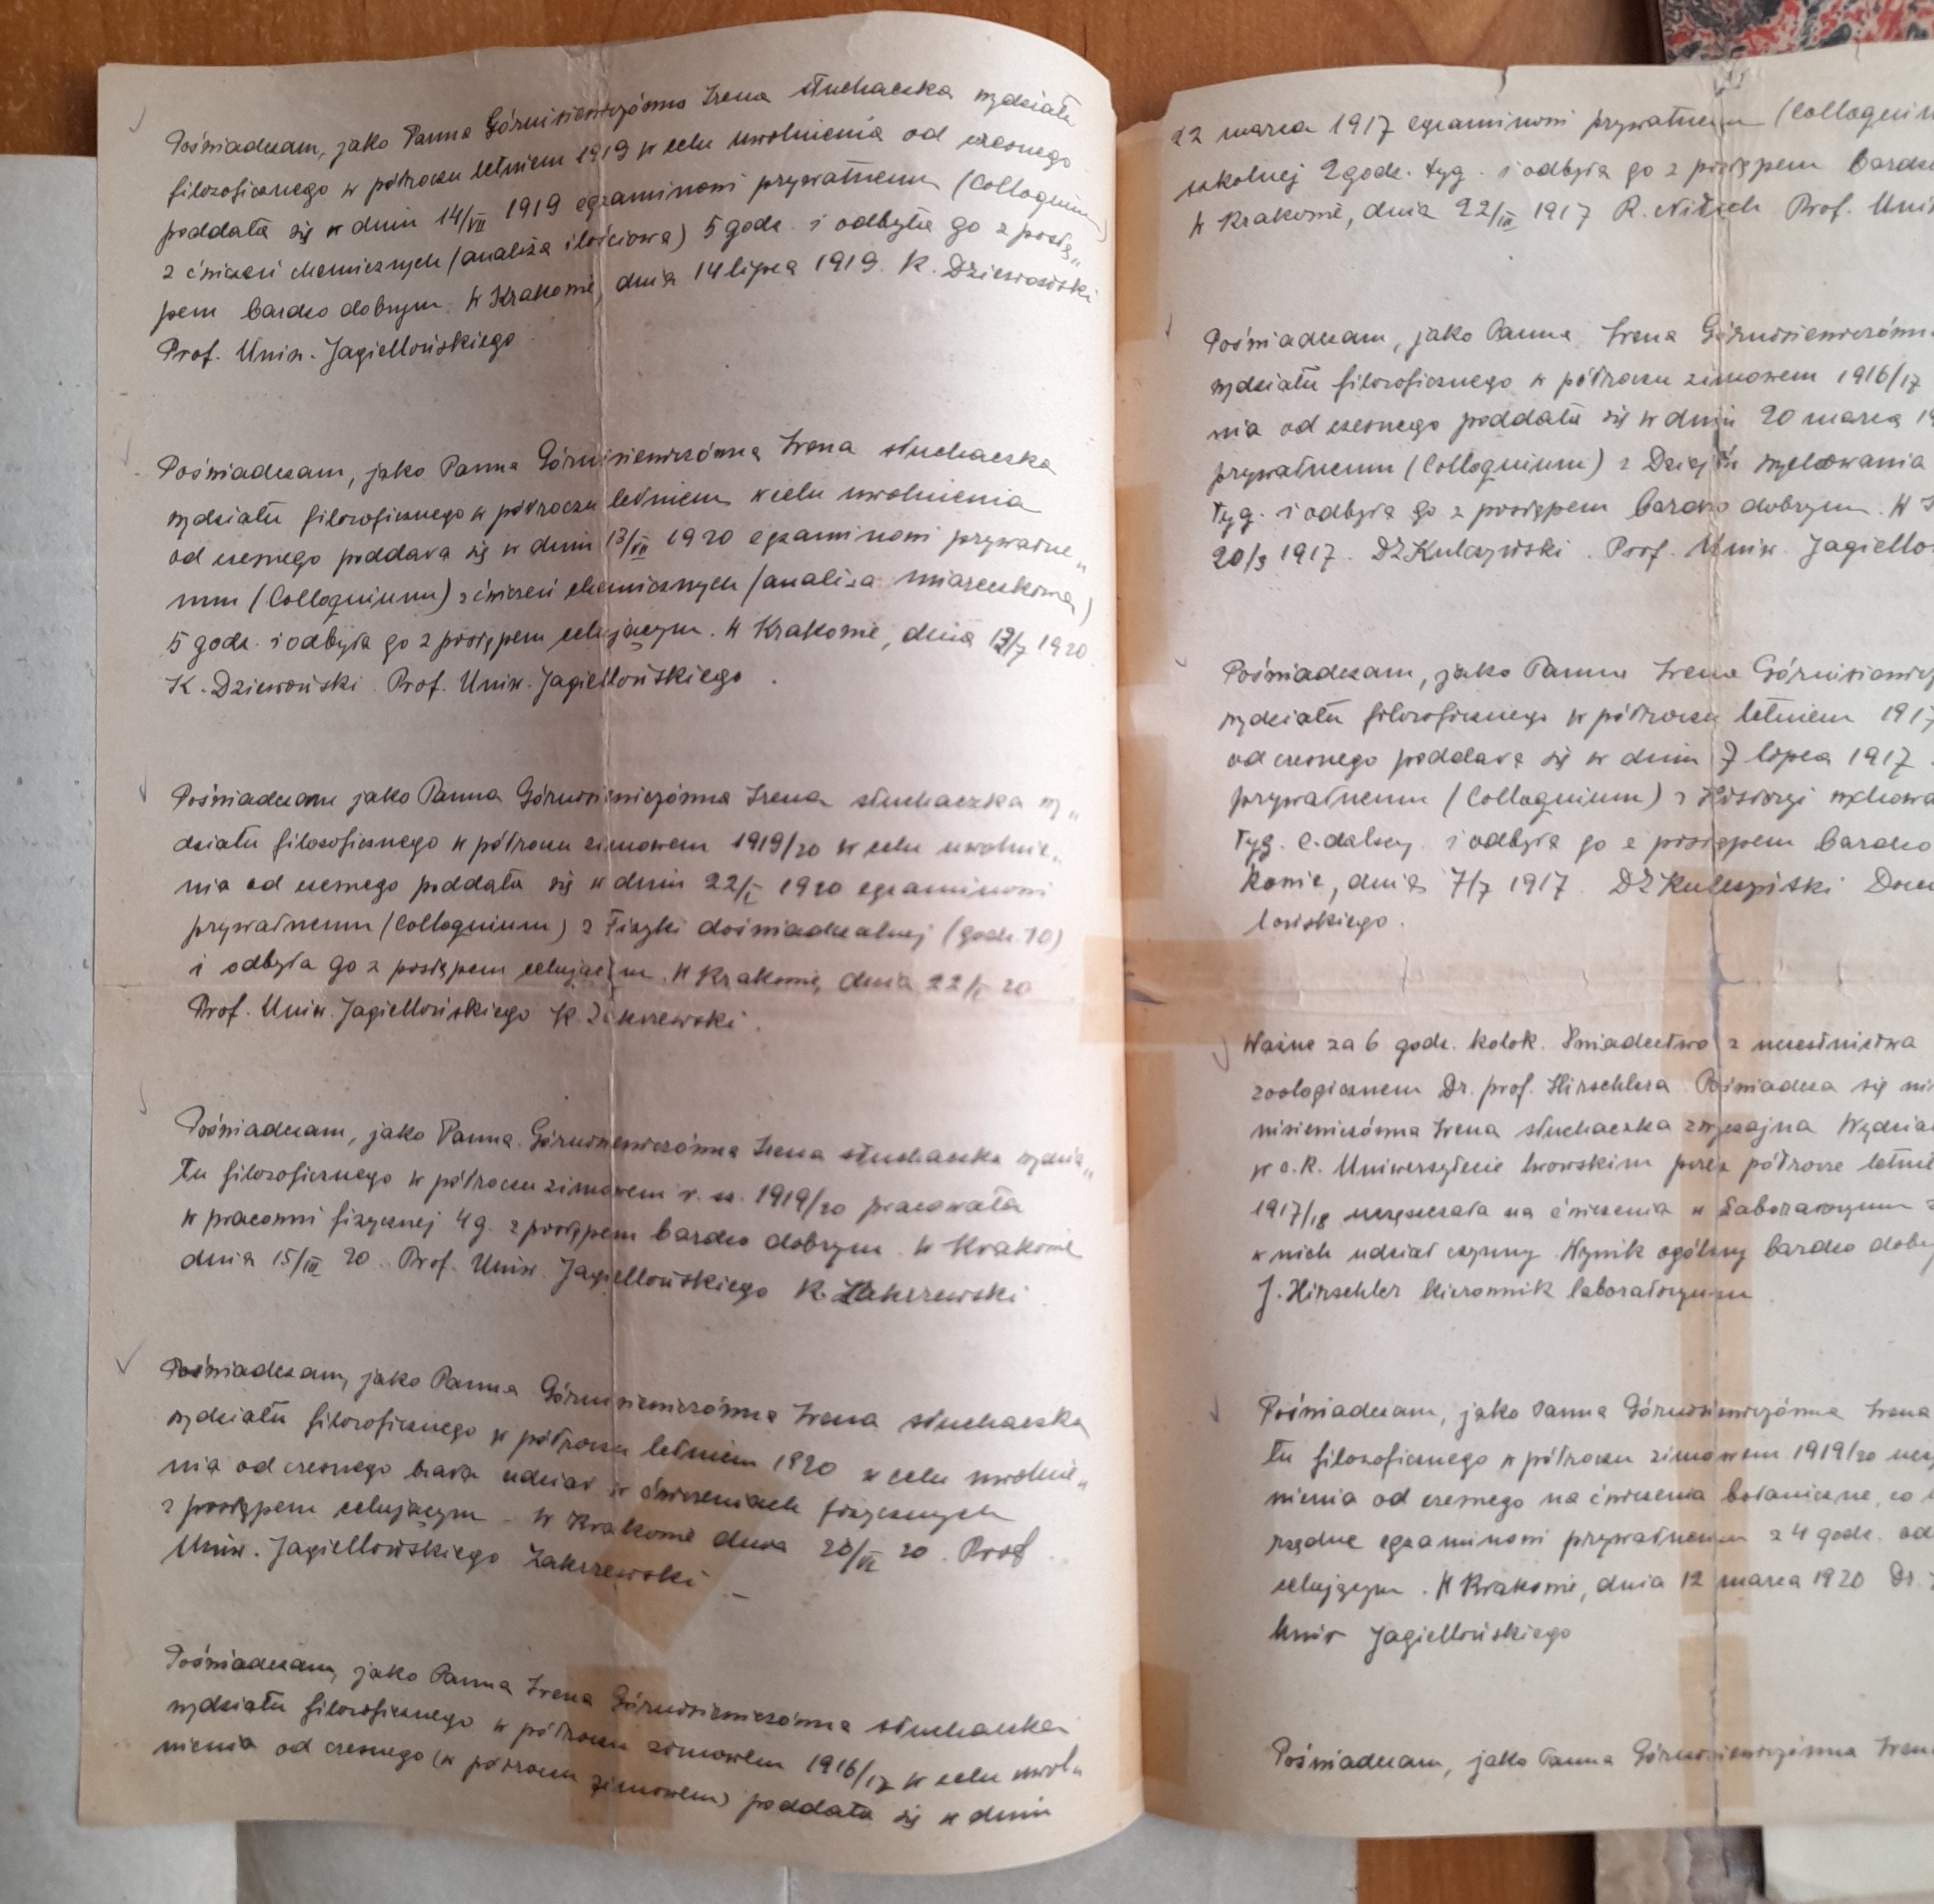 Poświadczam, jako Panna Górnisiewiczówna Irena słuchaczka wydziału
filozoficznego w półroczu letniem 1919 w celu uwolnienia od czesnego
poddała się w dniu 14/VII 1919 egzaminowi prywatnemu (Colloquium)
z ćwiczeń chemicznych (analiza ilościowa) 5 godz. i odbyła go z postę„
pem bardzo dobrym. W Krakowie, dnia 14 lipca 1919. K. Dziewoński
Prof. Uniw. Jagiellońskiego
Poświadczam, jako Panna Górnisiewiczówna Irena słuchaczka
wydziału filozoficznego w półroczu letniem w celu uwolnienia
od czesnego poddała się w dniu 13/VII 1920 egzaminowi prywatne„
mu (Colloquium) z ćwiczeń chemicznych (analiza miareczkowa)
5 godz. i odbyła go z postępem celującym. W Krakowie, dnia 13/7 1920.
K. Dziewoński Prof. Uniw. Jagiellońskiego.
Poświadczam jako Panna Górnisiewiczówna Irena słuchaczka wy„
działu filozoficznego w półroczu zimowem 1919/20 w celu uwolnie„
nia od czesnego poddała się w dniu 22/I 1920 egzaminowi
prywatnemu (Colloquium) z Fizyki doświadczalnej (godz. 10)
i odbyła go z postępem celującym. W Krakowie, dnia 22/I 20
Prof. Uniw. Jagiellońskiego K. Zakrzewski.
Poświadczam, jako Panna Górnisiewiczówna Irena słuchaczka wydzia„
łu filozoficznego w półroczu zimowem r. sz. 1919/20 pracowała
w pracowni fizycznej 4 g. z postępem bardzo dobrym. W Krakowie
dnia 15/III 20. Prof. Uniw. Jagiellońskiego K. Zakrzewski.
Poświadczam, jako Panna Górnisiewiczówna Irena słuchaczka
wydziału filozoficznego w półroczu letniem 1920 w celu uwolnie„
nia od czesnego brała udział w ćwiczeniach fizycznych
z postępem celującym - W Krakowie dnia 26/VI 20. Prof.
Uniw. Jagiellońskiego Zakrzewski -
Poświadczam, jako Panna Irena Górnisiewiczówna słuchaczka
wydziału filozoficznego w półroczu zimowem 1916/17 w celu uwol„
nienia od czesnego (w półroczu zimowem) poddała się w dniu
22 marca 1917 egzaminowi prywatnemu (Colloquium
szkolnej 2 godz. tyg. i odbyła go z postępem bardzo
W Krakowie, dnia 22/III 1917 R. Nitsch Prof. Uniw
Poświadczam, jako Panna Irena Górnisiewiczówna
wydziału filozoficznego w półroczu zimowem 1916/17
nia od czesnego poddała się w dniu 20 marca 19
prywatnemu (Colloquium) z Dziejów wychowania
tyg. i odbyła go z postępem bardzo dobrym. W
20/3 1917. Dr Kulczyński. Prof. Uniw. Jagiello
Poświadczam, jako Panna Irena Górnisiewicz
wydziału filozoficznego w półroczu letniem 1917
od czesnego poddała się w dniu 7 lipca 1917.
prywatnemu (Colloquium) z Historyi wychowa
tyg. c. dalszy. i odbyła go z postępem bardzo
kowie, dnia 7/7 1917. Doce
lońskiego.
Ważne za 6 godz. kolok. Świadectwo z uczestnictwa
zoologicznem Dr. prof. Hirschlera. Poświadcza się ni
nisiewiczówna Irena słuchaczka zwyczajna Wydzia
w c.k. Uniwersytecie lwowskim przez półrocze letnie
1917/18 uczęszczała na ćwiczenia w Laboratoryum
w nich udział czynny. Wynik ogólny bardzo dobry
J. Hirschler kierownik laboratoryum.
Poświadczam, jako Panna Górnisiewiczówna Irena
łu filozoficznego w półroczu zimowem 1919/20 ucz
nienia od czesnego na ćwiczenia botaniczne, co
rzędne egzaminowi prywatnemu z 4 godz. od
celującym. W Krakowie, dnia 12 marca 1920 Dr.
Uniw Jagiellońskiego
Poświadczam, jako Panna Górnisiewiczówna Irena